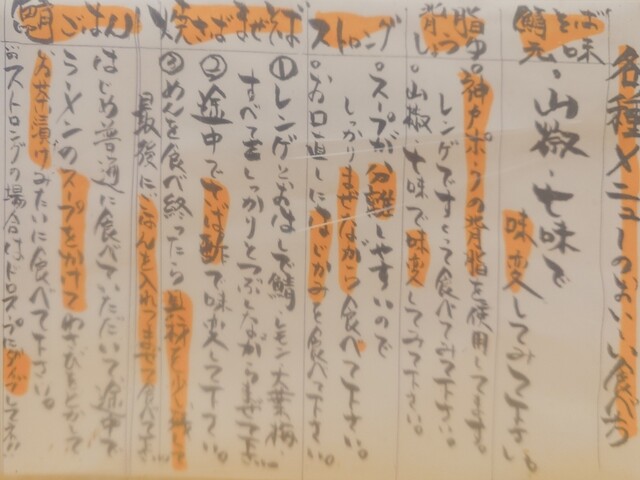 各種メニューのおいしい食べ方
鯖そば
・山椒・七味で
味変してみて下さい。
背脂しょうゆ
。神戸ポークの背脂を使用してます。
レンゲですくって食べてみて下さい。
。山椒、七味で味変してみて下さい。
ストロング
。スープが分離しやすいので
しっかりまぜながら食べて下さい。
。お口直しにはじかみを食べて下さい。
焼さばまぜそば
①レンゲとおはしで鯖、レモン、大葉、梅、
すべてをしっかりとつぶしながらまぜて下さい。
②途中でさば酢で味変して下さい。
③めんを食べ終ったら具材を少し残して
最後にごはんを入れてまぜて食べて下さい。
鯛ごはん
はじめ普通に食べていただいて途中で
ラーメンのスープをかけてわさびをとかして
お茶漬けみたいに食べて下さい。
※ストロングの場合はドロスープにダイブしてネ!!